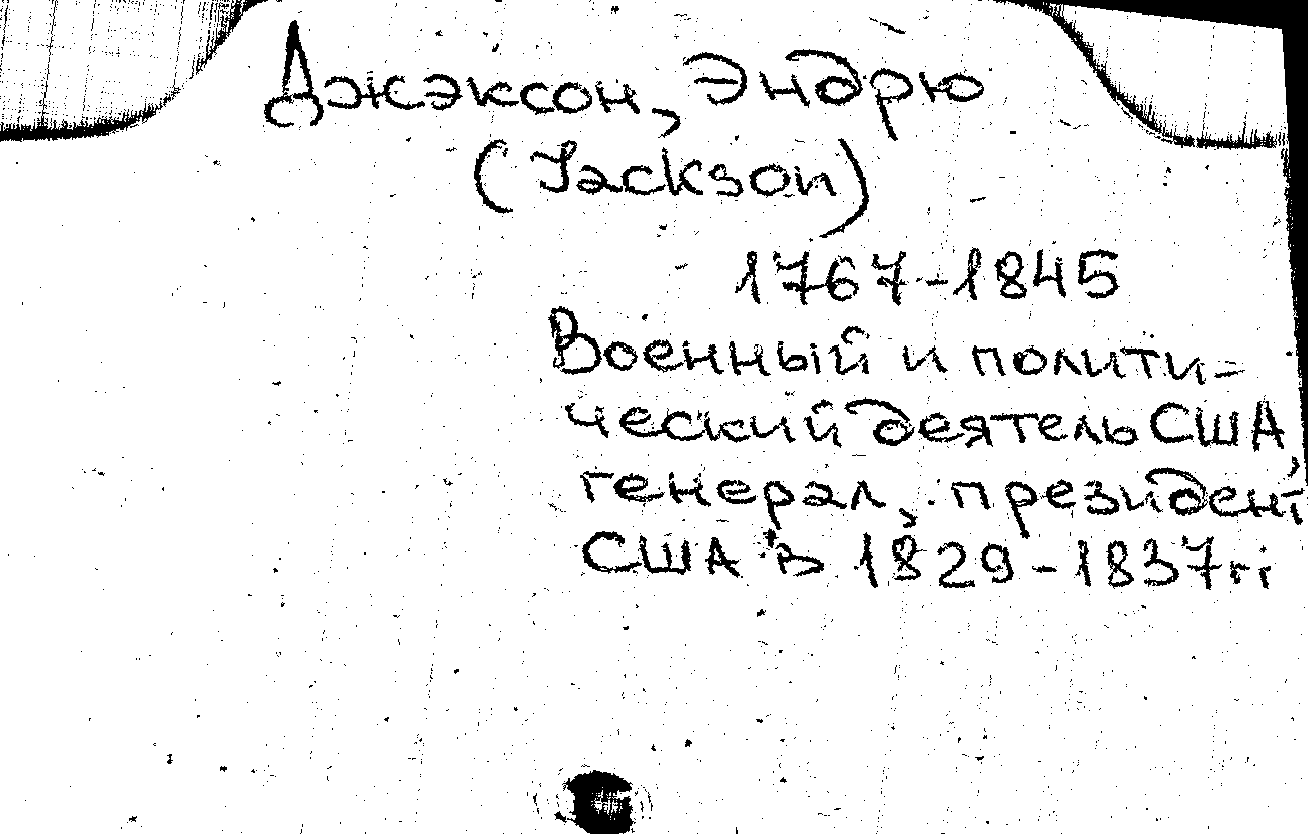 Джэксон, Эндрю
(Jackson)
1767-1845
Военный и полити-
ческий деятель США,
генерал, президент
США в 1829-1837гг.